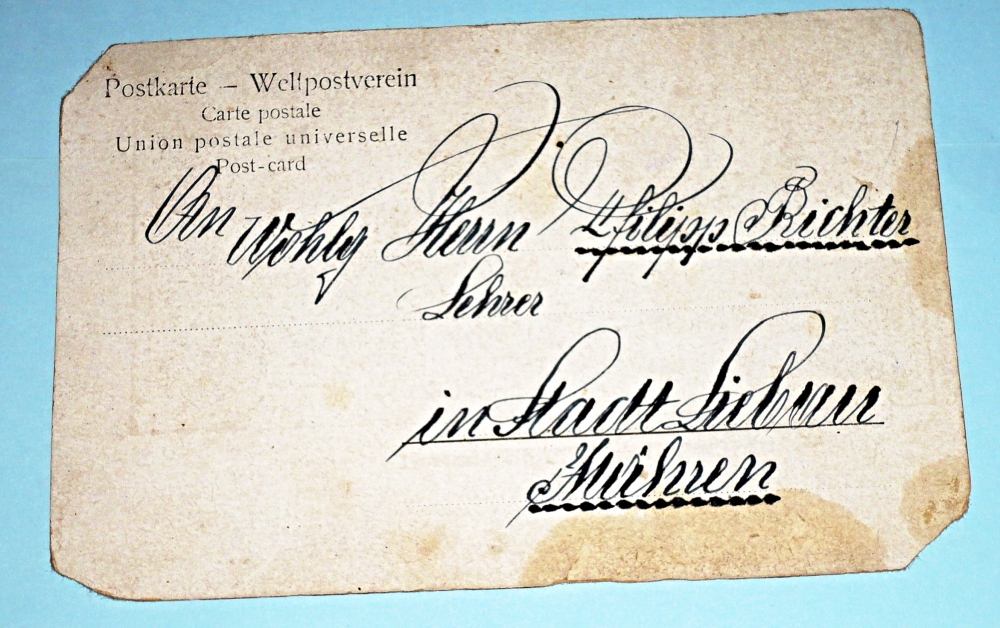 Postkarte — Weltpostverein
Carte postale
Union postale universelle
Post-card
An Wohlg Herrn Philipp Richter
Lehrer
in Stadt Liebau
Mähren